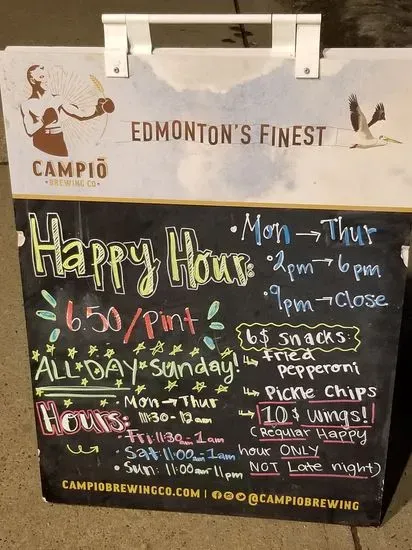 EDMONTON'S FINEST
CAMPIŌ
BREWING CO
Happy Hour:
• Mon → Thur
• 2pm → 6pm
• 9pm → Close
6.50/Pint
ALL•DAY•Sunday!
6$ snacks:
↳ fried pepperoni
↳ Pickle Chips
↳ 10$ Wings!
(Regular Happy
hour ONLY
NOT Late night)
Hours:
• Mon → Thur
11:30 - 12am
• Fri: 11:30 - 1am
• Sat: 11:00am - 1am
• Sun: 11:00am - 11pm
CAMPIOBREWINGCO.COM | @CAMPIOBREWING